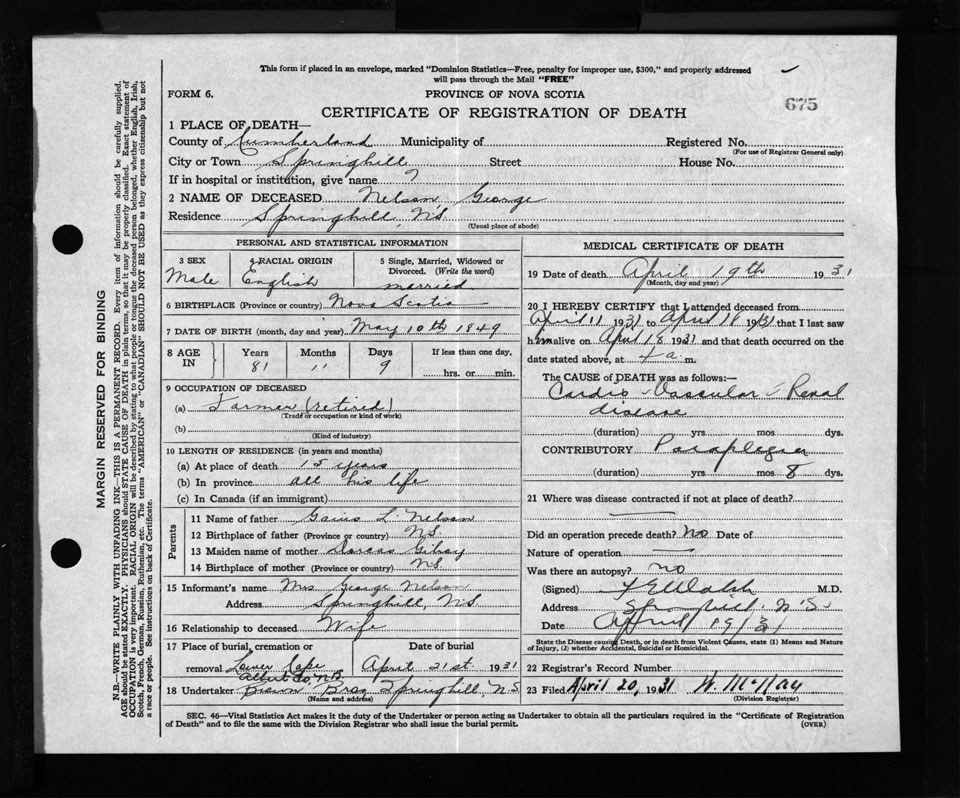 This form if placed in an envelope, marked "Dominion Statistics—Free, penalty for improper use, $300," and properly addressed
will pass through the Mail "FREE"
FORM 6.
PROVINCE OF NOVA SCOTIA
675
CERTIFICATE OF REGISTRATION OF DEATH
1 PLACE OF DEATH—
County of Cumberland Municipality of Registered No.
(For use of Registrar General only)
City or Town Springhill Street House No.
If in hospital or institution, give name
2 NAME OF DECEASED Nelson, George
Residence Springhill, N.S.
(Usual place of abode)
PERSONAL AND STATISTICAL INFORMATION
3 SEX 4 RACIAL ORIGIN 5 Single, Married, Widowed or
Divorced. (Write the word)
Male English married
6 BIRTHPLACE (Province or country) Nova Scotia
7 DATE OF BIRTH (month, day and year) May 10th 1849
8 AGE IN Years Months Days If less than one day,
81 11 9 hrs. or min.
9 OCCUPATION OF DECEASED
(a) Farmer (retired)
(Trade or occupation or kind of work)
(b)
(Kind of industry)
10 LENGTH OF RESIDENCE (in years and months)
(a) At place of death 15 years
(b) In province all his life
(c) In Canada (if an immigrant)
Parents
11 Name of father Gaius L. Nelson
12 Birthplace of father (Province or country) N.S.
13 Maiden name of mother Dorcas
14 Birthplace of mother (Province or country) N.S.
15 Informant's name Mrs George Nelson
Address Springhill, N.S.
16 Relationship to deceased Wife
17 Place of burial, cremation or Date of burial
removal Lower Cape April 21st 1931
Albert Co, N.B.
18 Undertaker Brown Bros, Springhill, N.S.
(Name and address)
MEDICAL CERTIFICATE OF DEATH
19 Date of death April 19th 1931
(Month, day and year)
20 I HEREBY CERTIFY that I attended deceased from
April 11 1931 to April 18 1931 that I last saw
him alive on April 18 1931 and that death occurred on the
date stated above, at 4 a.m.
The CAUSE of DEATH was as follows:—
Cardio-Vascular-Renal
disease
(duration) yrs mos dys.
CONTRIBUTORY Paraplegia
(duration) yrs mos 8 dys.
21 Where was disease contracted if not at place of death?
Did an operation precede death? No Date of
Nature of operation
Was there an autopsy? no
(Signed) Walsh M.D.
Address Springhill, N.S.
Date April 19/31
State the Disease causing Death, or in death from Violent Causes, state (1) Means and Nature
of Injury, (2) whether Accidental, Suicidal or Homicidal.
22 Registrar's Record Number
23 Filed April 20, 1931 W. McKay
(Division Registrar)
SEC. 46—Vital Statistics Act makes it the duty of the Undertaker or person acting as Undertaker to obtain all the particulars required in the "Certificate of Registration
of Death" and to file the same with the Division Registrar who shall issue the burial permit. (OVER)
MARGIN RESERVED FOR BINDING
N.B.—WRITE PLAINLY WITH UNFADING INK—THIS IS A PERMANENT RECORD. Every item of information should be carefully supplied.
AGE should be stated EXACTLY. PHYSICIANS should STATE CAUSE OF DEATH in plain terms, so that it may be properly classified. Exact statement of
OCCUPATION is very important. RACIAL ORIGIN will be described by stating to what people or tongue the deceased person belonged, whether English, Irish,
Scotch, French, German, Russian, Ruthenian, etc. The terms "AMERICAN" or "CANADIAN" SHOULD NOT BE USED as they express citizenship but not
a race or people. See instructions on back of Certificate.